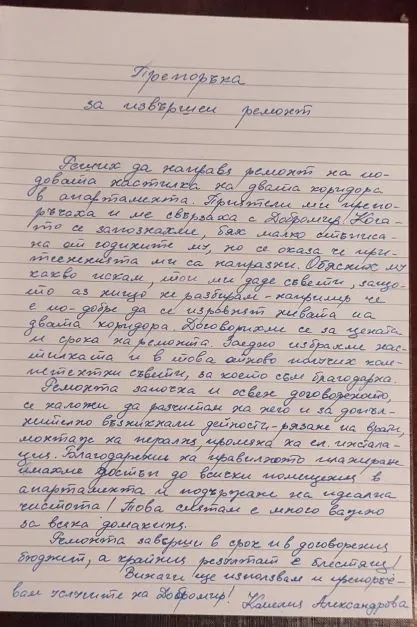 Препоръка
за извършен ремонт
Реших да направя ремонт на по-
довата настилка на двата коридора
в апартамента. Приятели ми препо-
ръчаха и ме свързаха с Добромир! Кога-
то се запознахме, бях малко стъписа-
на от годините му, но се оказа че при-
тесненията ми са напразни. Обясних му
какво искам, той ми даде съвети, защо-
то аз нищо не разбирам - например че
е по-добре да се изравнят нивата на
двата коридора. Договорихме се за цената
и срока на ремонта. Заедно избрахме нас-
тилката и в това отново получих ком-
петентни съвети, за което съм благодарна.
Ремонта започна и освен договореното,
се наложи да разчитам на него и за допъл-
нително възникнали дейности - рязане на врати,
монтаж на пералня, промяна на ел. инстала-
ция. Благодарение на правилното планиране
имахме достъп до всички помещения в
апартамента и поддържане на идеална
чистота! Това смятам е много важно
за всяка домакиня.
Ремонта завърши в срок и в договорения
бюджет, а крайния резултат е блестящ!
Винаги ще използвам и препоръч-
вам услугите на Добромир! Камелия Александрова